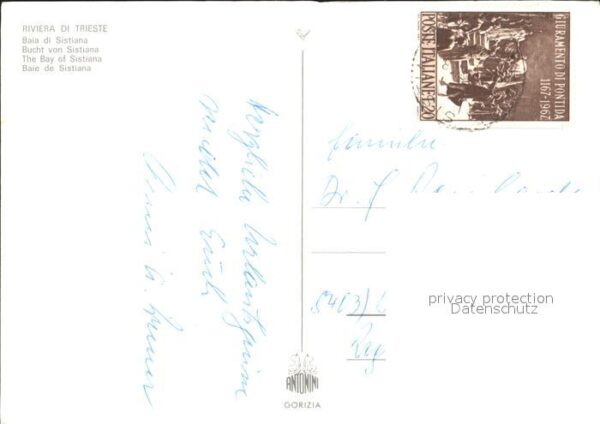 RIVIERA DI TRIESTE
Baia di Sistiana
Bucht von Sistiana
The Bay of Sistiana
Baie de Sistiana
Herzliche Urlaubsgrüsse
sendet Euch
GIURAMENTO DI PONTIDA
1167-1967
POSTE ITALIANE L. 20
Familie
Dr.
privacy protection
Datenschutz
ANTONINI
GORIZIA